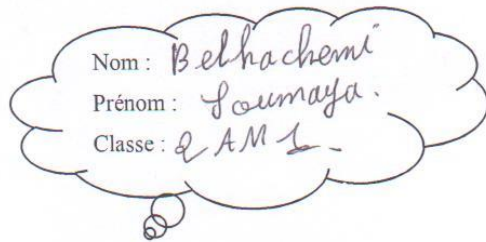 Nom : Belhachemi
Prénom : Soumaya.
Classe : 2 AM 1